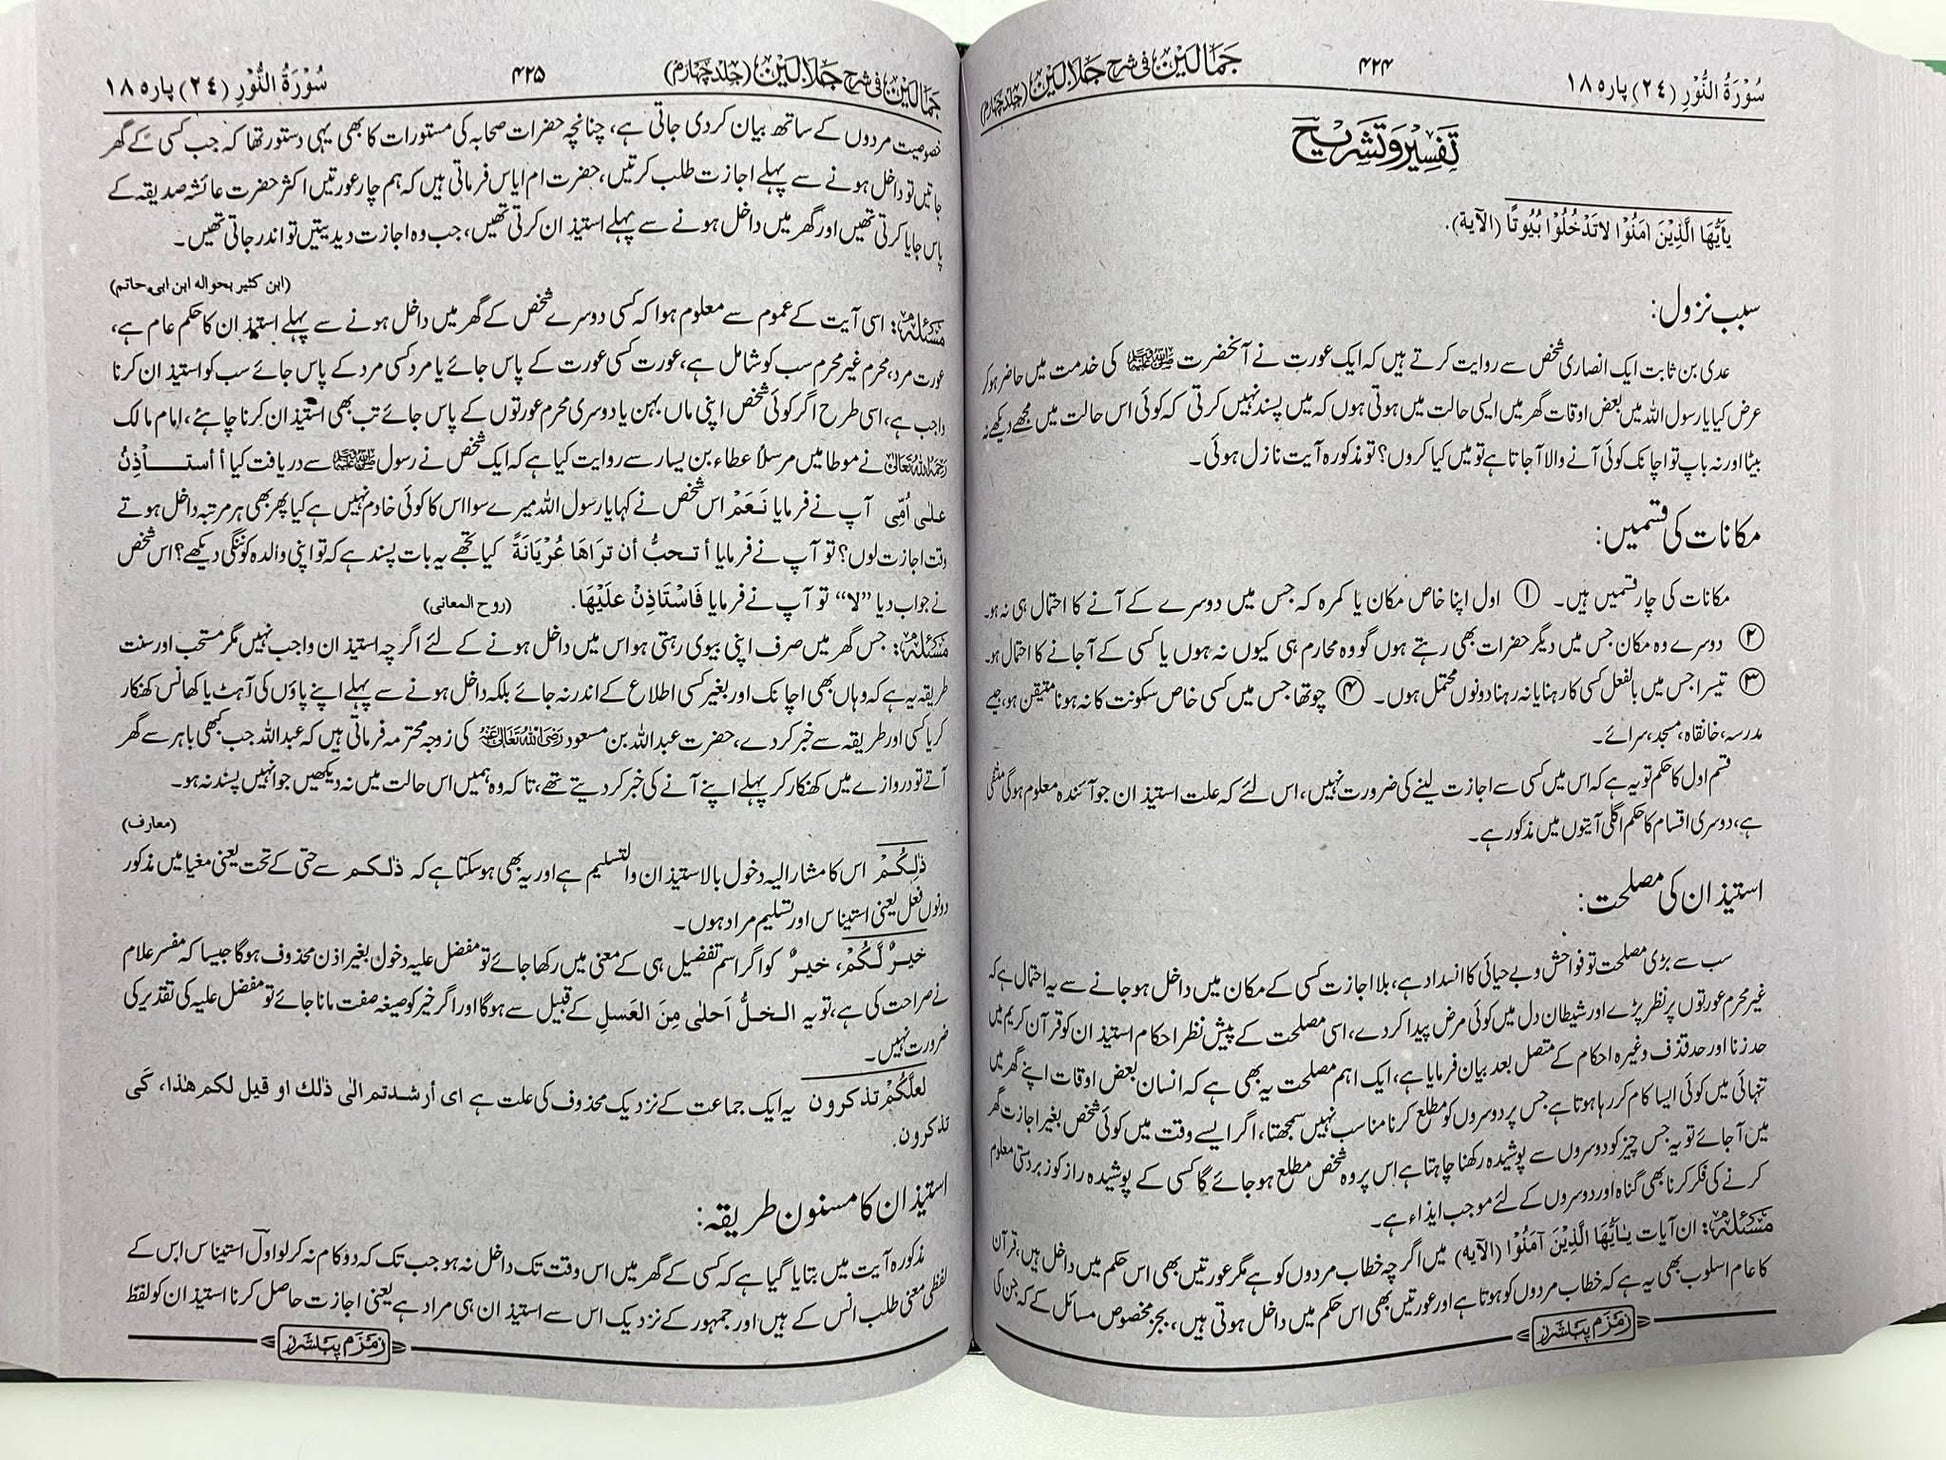 جمالین فی شرح جلالین (جلد چہارم)
۴۲۴
سُوْرَةُ النُّوْرِ (۲٤) پارہ ۱۸
تفسیر و تشریح
یٰٓاَیُّهَا الَّذِیْنَ اٰمَنُوْا لاتَدْخُلُوْا بُیُوتًا (الآیة).
سبب نزول:
عدی بن ثابت ایک انصاری شخص سے روایت کرتے ہیں کہ ایک عورت نے آنحضرت ﷺ کی خدمت میں حاضر ہو کر
عرض کیا یا رسول اللہ میں بعض اوقات گھر میں ایسی حالت میں ہوتی ہوں کہ میں پسند نہیں کرتی کہ کوئی اس حالت میں مجھے دیکھے نہ
بیٹا اور نہ باپ تو اچانک کوئی آنے والا آجاتا ہے تو میں کیا کروں؟ تو مذکورہ آیت نازل ہوئی۔
مکانات کی قسمیں:
مکانات کی چار قسمیں ہیں۔ ① اول اپنا خاص مکان یا کمرہ کہ جس میں دوسرے کے آنے کا احتمال ہی نہ ہو۔
② دوسرے وہ مکان جس میں دیگر حضرات بھی رہتے ہوں گو وہ محارم ہی کیوں نہ ہوں یا کسی کے آجانے کا احتمال ہو۔
③ تیسرا جس میں بالفعل کسی کا رہنا یا نہ رہنا دونوں محتمل ہوں۔ ④ چوتھا جس میں کسی خاص سکونت کا نہ ہونا متیقن ہو، جیسے
مدرسہ، خانقاہ، مسجد، سرائے۔
قسم اول کا حکم تو یہ ہے کہ اس میں کسی سے اجازت لینے کی ضرورت نہیں، اس لئے کہ علت استیذان جو آئندہ معلوم ہوگی منتفی
ہے، دوسری اقسام کا حکم اگلی آیتوں میں مذکور ہے۔
استیذان کی مصلحت:
سب سے بڑی مصلحت تو فواحش و بے حیائی کا انسداد ہے، بلا اجازت کسی کے مکان میں داخل ہوجانے سے یہ احتمال ہے کہ
غیر محرم عورتوں پر نظر پڑے اور شیطان دل میں کوئی مرض پیدا کردے، اسی مصلحت کے پیش نظر احکام استیذان کو قرآن کریم میں
حد زنا اور حد قذف وغیرہ احکام کے متصل بعد بیان فرمایا ہے، ایک اہم مصلحت یہ بھی ہے کہ انسان بعض اوقات اپنے گھر میں
تنہائی میں کوئی ایسا کام کررہا ہوتا ہے جس پر دوسروں کو مطلع کرنا مناسب نہیں سمجھتا، اگر ایسے وقت میں کوئی شخص بغیر اجازت گھر
میں آجائے تو یہ جس چیز کو دوسروں سے پوشیدہ رکھنا چاہتا ہے اس پر وہ شخص مطلع ہوجائے گا کسی کے پوشیدہ راز کو زبردستی معلوم
کرنے کی فکر کرنا بھی گناہ اور دوسروں کے لئے موجب ایذاء ہے۔
مَسْئَلَہ: ان آیات یٰاَیُّهَا الَّذِیْنَ آمَنُوْا (الآیه) میں اگرچہ خطاب مردوں کو ہے مگر عورتیں بھی اس حکم میں داخل ہیں، قرآن
کا عام اسلوب بھی یہ ہے کہ خطاب مردوں کو ہوتا ہے اور عورتیں بھی اس حکم میں داخل ہوتی ہیں، بجز مخصوص مسائل کے کہ جن کی
زمزم پبلشرز
جمالین فی شرح جلالین (جلد چہارم)
۴۲۵
سُوْرَةُ النُّوْرِ (۲٤) پارہ ۱۸
خصوصیت مردوں کے ساتھ بیان کردی جاتی ہے، چنانچہ حضرات صحابہ کی مستورات کا بھی یہی دستور تھا کہ جب کسی کے گھر
جاتیں تو داخل ہونے سے پہلے اجازت طلب کرتیں، حضرت ام ایاس فرماتی ہیں کہ ہم چار عورتیں اکثر حضرت عائشہ صدیقہ کے
پاس جایا کرتی تھیں اور گھر میں داخل ہونے سے پہلے استیذان کرتی تھیں، جب وہ اجازت دیدیتیں تو اندر جاتی تھیں۔
(ابن کثیر بحوالہ ابن ابی حاتم)
مَسْئَلَہ: اسی آیت کے عموم سے معلوم ہوا کہ کسی دوسرے شخص کے گھر میں داخل ہونے سے پہلے استیذان کا حکم عام ہے،
عورت مرد، محرم غیر محرم سب کو شامل ہے، عورت کسی عورت کے پاس جائے یا مرد کسی مرد کے پاس جائے سب کو استیذان کرنا
واجب ہے، اسی طرح اگر کوئی شخص اپنی ماں بہن یا دوسری محرم عورتوں کے پاس جائے تب بھی استیذان کرنا چاہئے، امام مالک
رَحِمَہُ اللّٰہُ تَعَالٰی نے موطا میں مرسلاً عطاء بن یسار سے روایت کیا ہے کہ ایک شخص نے رسول ﷺ سے دریافت کیا أ أستــأذِنُ
علی اُمِّی آپ نے فرمایا نَعَمْ اس شخص نے کہا یا رسول اللہ میرے سوا اس کا کوئی خادم نہیں ہے کیا پھر بھی ہر مرتبہ داخل ہوتے
وقت اجازت لوں؟ تو آپ نے فرمایا أ تحبُّ أن تَراهَا عُرْیَانَةً کیا تجھے یہ بات پسند ہے کہ تو اپنی والدہ کو ننگی دیکھے؟ اس شخص
نے جواب دیا ”لا“ تو آپ نے فرمایا فَاسْتَاذِنْ عَلَیْهَا. (روح المعانی)
مَسْئَلَہ: جس گھر میں صرف اپنی بیوی رہتی ہو اس میں داخل ہونے کے لئے اگرچہ استیذان واجب نہیں مگر مستحب اور سنت
طریقہ یہ ہے کہ وہاں بھی اچانک اور بغیر کسی اطلاع کے اندر نہ جائے بلکہ داخل ہونے سے پہلے اپنے پاؤں کی آہٹ یا کھانس کھنکار
کر یا کسی اور طریقہ سے خبر کردے، حضرت عبداللہ بن مسعود رَضِیَ اللّٰہُ تَعَالٰی عَنْہُ کی زوجہ محترمہ فرماتی ہیں کہ عبداللہ جب کبھی باہر سے گھر
آتے تو دروازے میں کھنکار کر پہلے اپنے آنے کی خبر کردیتے تھے، تاکہ وہ ہمیں اس حالت میں نہ دیکھیں جو انہیں پسند نہ ہو۔
(معارف)
ذٰلِکُمْ اس کا مشار الیہ دخول بالاستیذان والتسلیم ہے اور یہ بھی ہوسکتا ہے کہ ذٰلکم سے حتی کے تحت یعنی مغیا میں مذکور
دونوں فعل یعنی استیناس اور تسلیم مراد ہوں۔
خیرٌ لَّکُمْ، خیرٌ کو اگر اسم تفضیل ہی کے معنی میں رکھا جائے تو مفضل علیہ دخول بغیر اذن محذوف ہوگا جیسا کہ مفسر علام
نے صراحت کی ہے، تو یہ الخلُّ اَحلٰی مِنَ العَسلِ کے قبیل سے ہوگا اور اگر خیر کو صیغہ صفت مانا جائے تو مفضل علیہ کی تقدیر کی
ضرورت نہیں۔
لَعلَّکُمْ تذکرون یہ ایک جماعت کے نزدیک محذوف کی علت ہے ای أرشدتم الٰی ذٰلك او قیل لکم هٰذا، کَی
تذکرون.
استیذان کا مسنون طریقہ:
مذکورہ آیت میں بتایا گیا ہے کہ کسی کے گھر میں اس وقت تک داخل نہ ہو جب تک کہ دو کام نہ کرلو اول استیناس اس کے
لفظی معنی طلب انس کے ہیں اور جمہور کے نزدیک اس سے استیذان ہی مراد ہے یعنی اجازت حاصل کرنا استیذان کو لفظ
زمزم پبلشرز